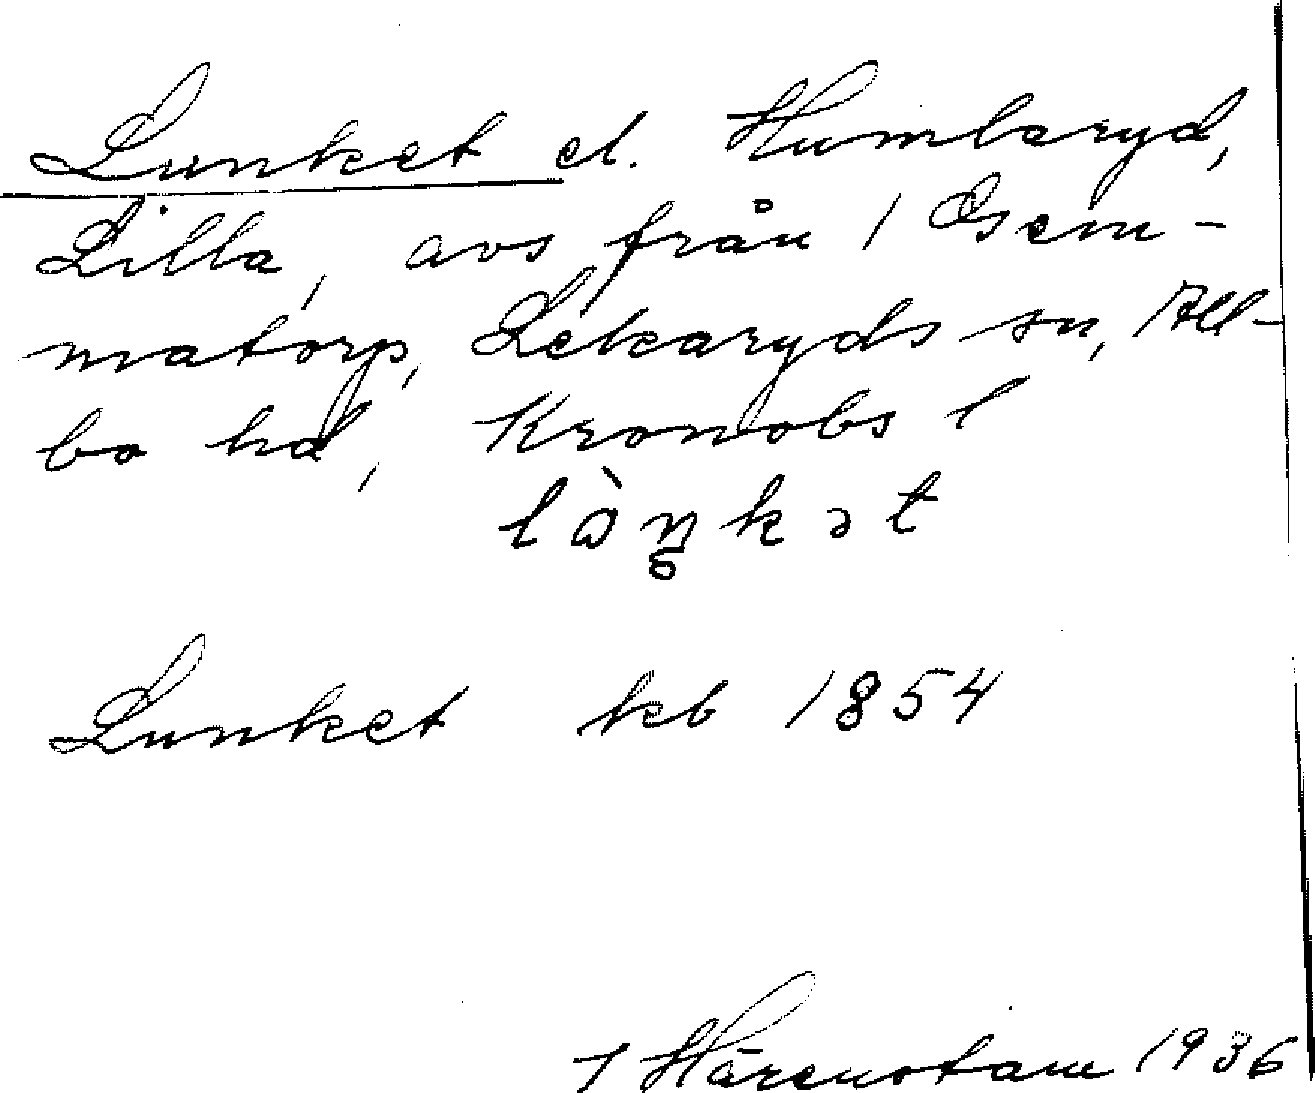 Lunket el. Humleryd,
Lilla, avs från 1 Osem-
matorp, Lekaryds sn, All-
bo hd, Kronobs l
lòŋkət
Lunket kb 1854
I Härenstam 1936